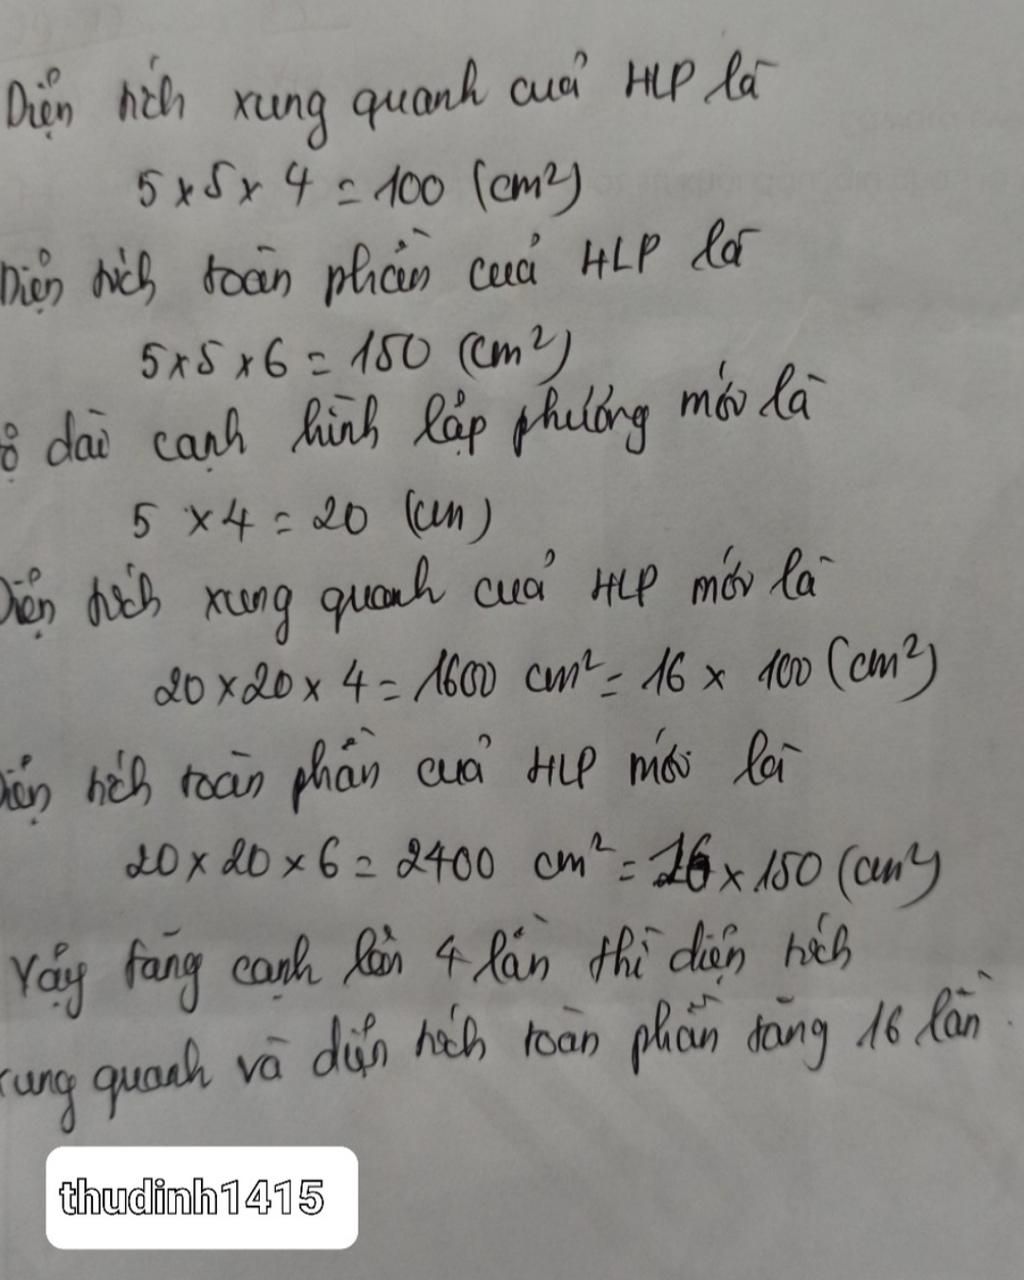 Diện tích xung quanh của HLP là
5 x 5 x 4 = 100 (cm²)
Diện tích toàn phần của HLP là
5 x 5 x 6 = 150 (cm²)
độ dài cạnh hình lập phương mới là
5 x 4 = 20 (cm)
Diện tích xung quanh của HLP mới là
20 x 20 x 4 = 1600 cm² = 16 x 100 (cm²)
Diện tích toàn phần của HLP mới là
20 x 20 x 6 = 2400 cm² = 16 x 150 (cm²)
Vậy tăng cạnh lên 4 lần thì diện tích
xung quanh và diện tích toàn phần tăng 16 lần.
thudinh1415